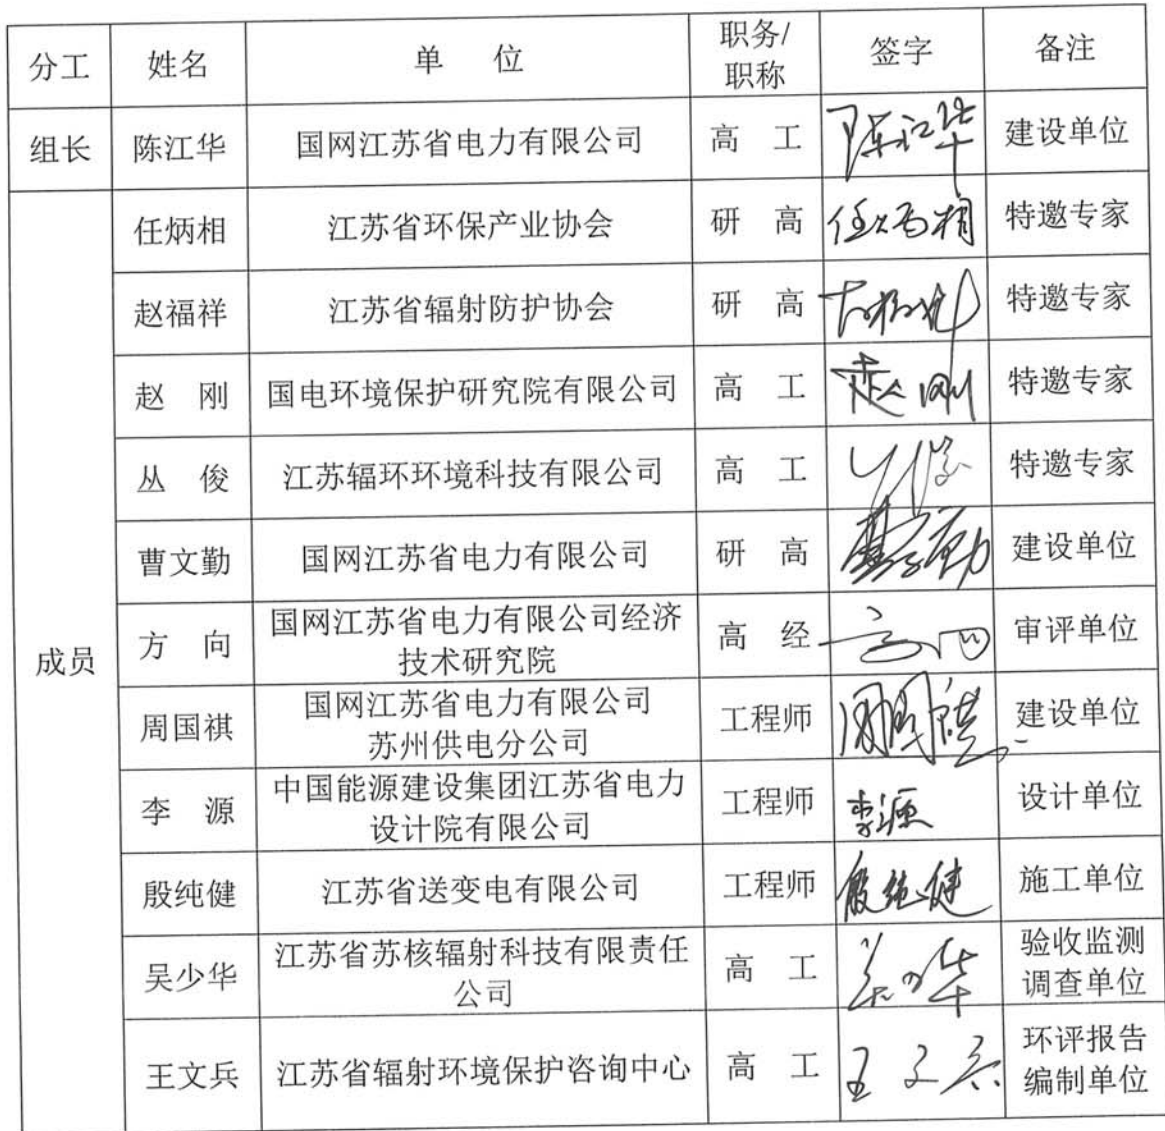 分工 姓名 单 位 职务/职称 签字 备注
组长 陈江华 国网江苏省电力有限公司 高 工 陈江华 建设单位
成员
任炳相 江苏省环保产业协会 研 高 任炳相 特邀专家
赵福祥 江苏省辐射防护协会 研 高 特邀专家
赵 刚 国电环境保护研究院有限公司 高 工 赵刚 特邀专家
丛 俊 江苏辐环环境科技有限公司 高 工 特邀专家
曹文勤 国网江苏省电力有限公司 研 高 建设单位
方 向 国网江苏省电力有限公司经济
技术研究院 高 经 方向 审评单位
周国祺 国网江苏省电力有限公司
苏州供电分公司 工程师 周国祺 建设单位
李 源 中国能源建设集团江苏省电力
设计院有限公司 工程师 李源 设计单位
殷纯健 江苏省送变电有限公司 工程师 殷纯健 施工单位
吴少华 江苏省苏核辐射科技有限责任
公司 高 工 吴少华 验收监测
调查单位
王文兵 江苏省辐射环境保护咨询中心 高 工 王文兵 环评报告
编制单位